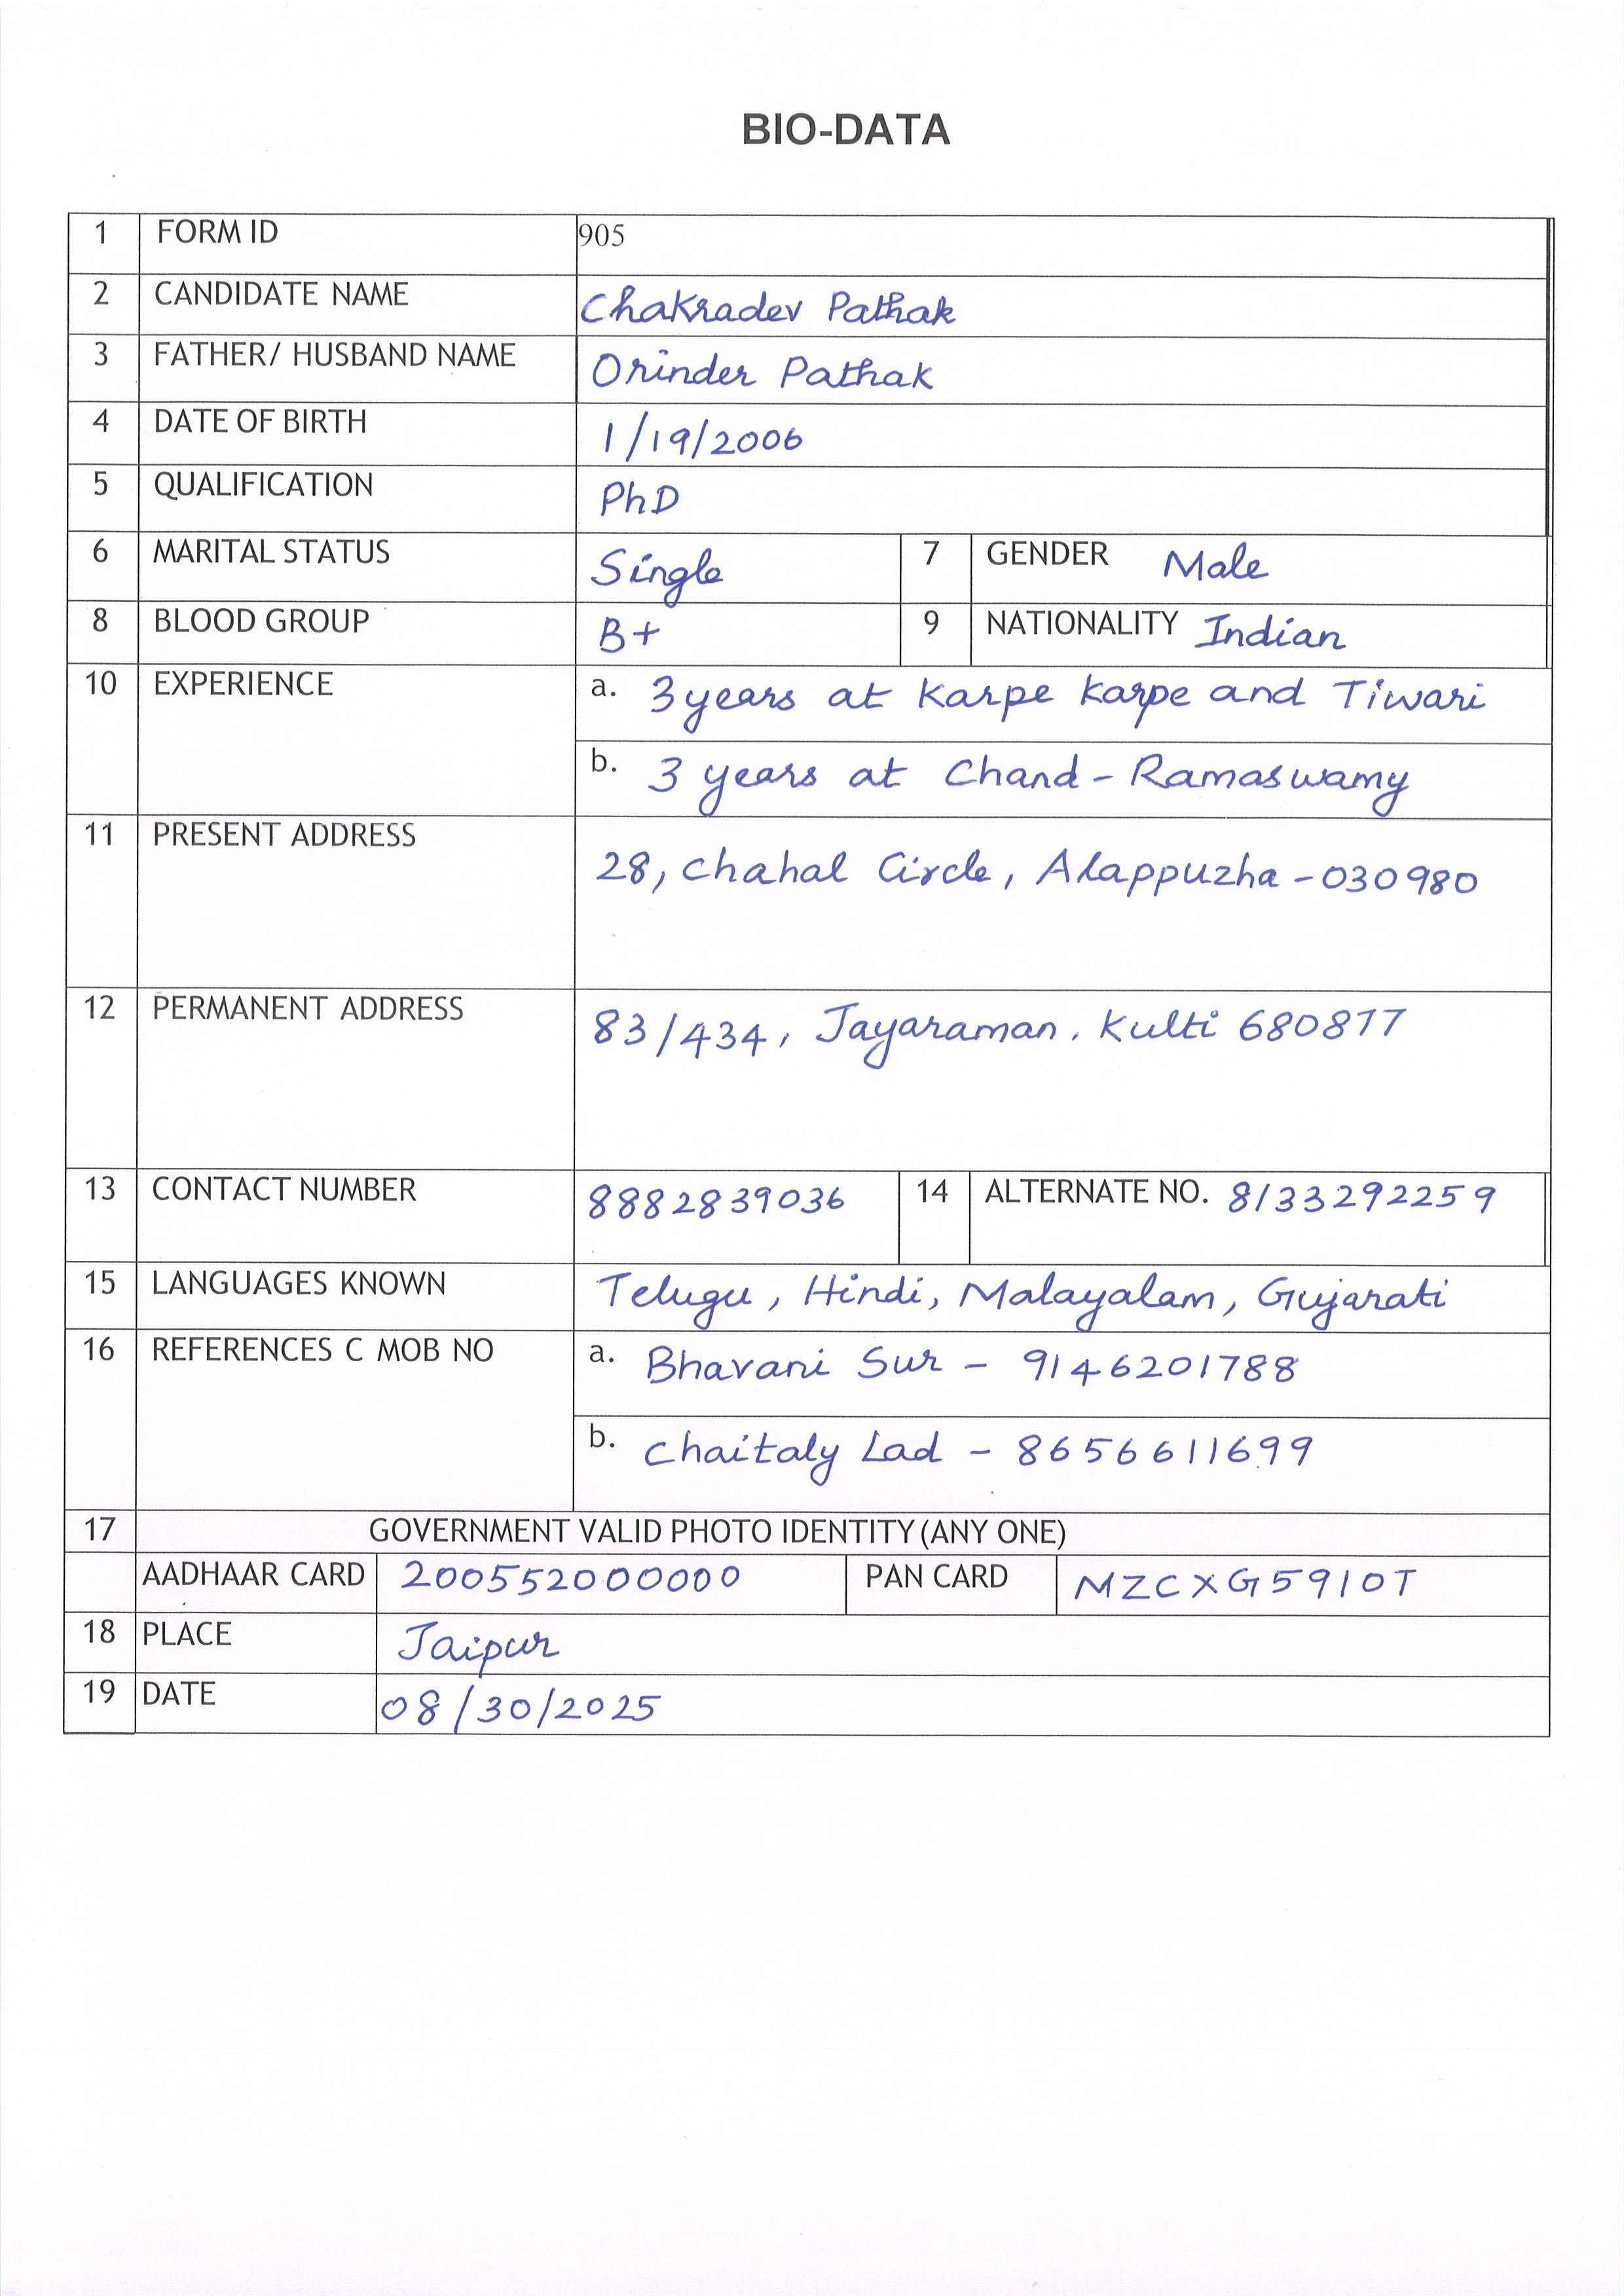 BIO-DATA
1 FORM ID 905
2 CANDIDATE NAME Chakradev Pathak
3 FATHER/ HUSBAND NAME Orinder Pathak
4 DATE OF BIRTH 1/19/2006
5 QUALIFICATION PhD
6 MARITAL STATUS Single 7 GENDER Male
8 BLOOD GROUP B+ 9 NATIONALITY Indian
10 EXPERIENCE a. 3 years at Karpe Karpe and Tiwari
b. 3 years at Chand - Ramaswamy
11 PRESENT ADDRESS 28, Chahal Circle, Alappuzha - 030980
12 PERMANENT ADDRESS 83/434, Jayaraman, Kulti 680877
13 CONTACT NUMBER 8882839036 14 ALTERNATE NO. 8133292259
15 LANGUAGES KNOWN Telugu, Hindi, Malayalam, Gujarati
16 REFERENCES C MOB NO a. Bhavani Sur - 9146201788
b. Chaitaly Lad - 8656611699
17 GOVERNMENT VALID PHOTO IDENTITY (ANY ONE)
AADHAAR CARD 200552000000 PAN CARD MZCXG5910T
18 PLACE Jaipur
19 DATE 08/30/2025